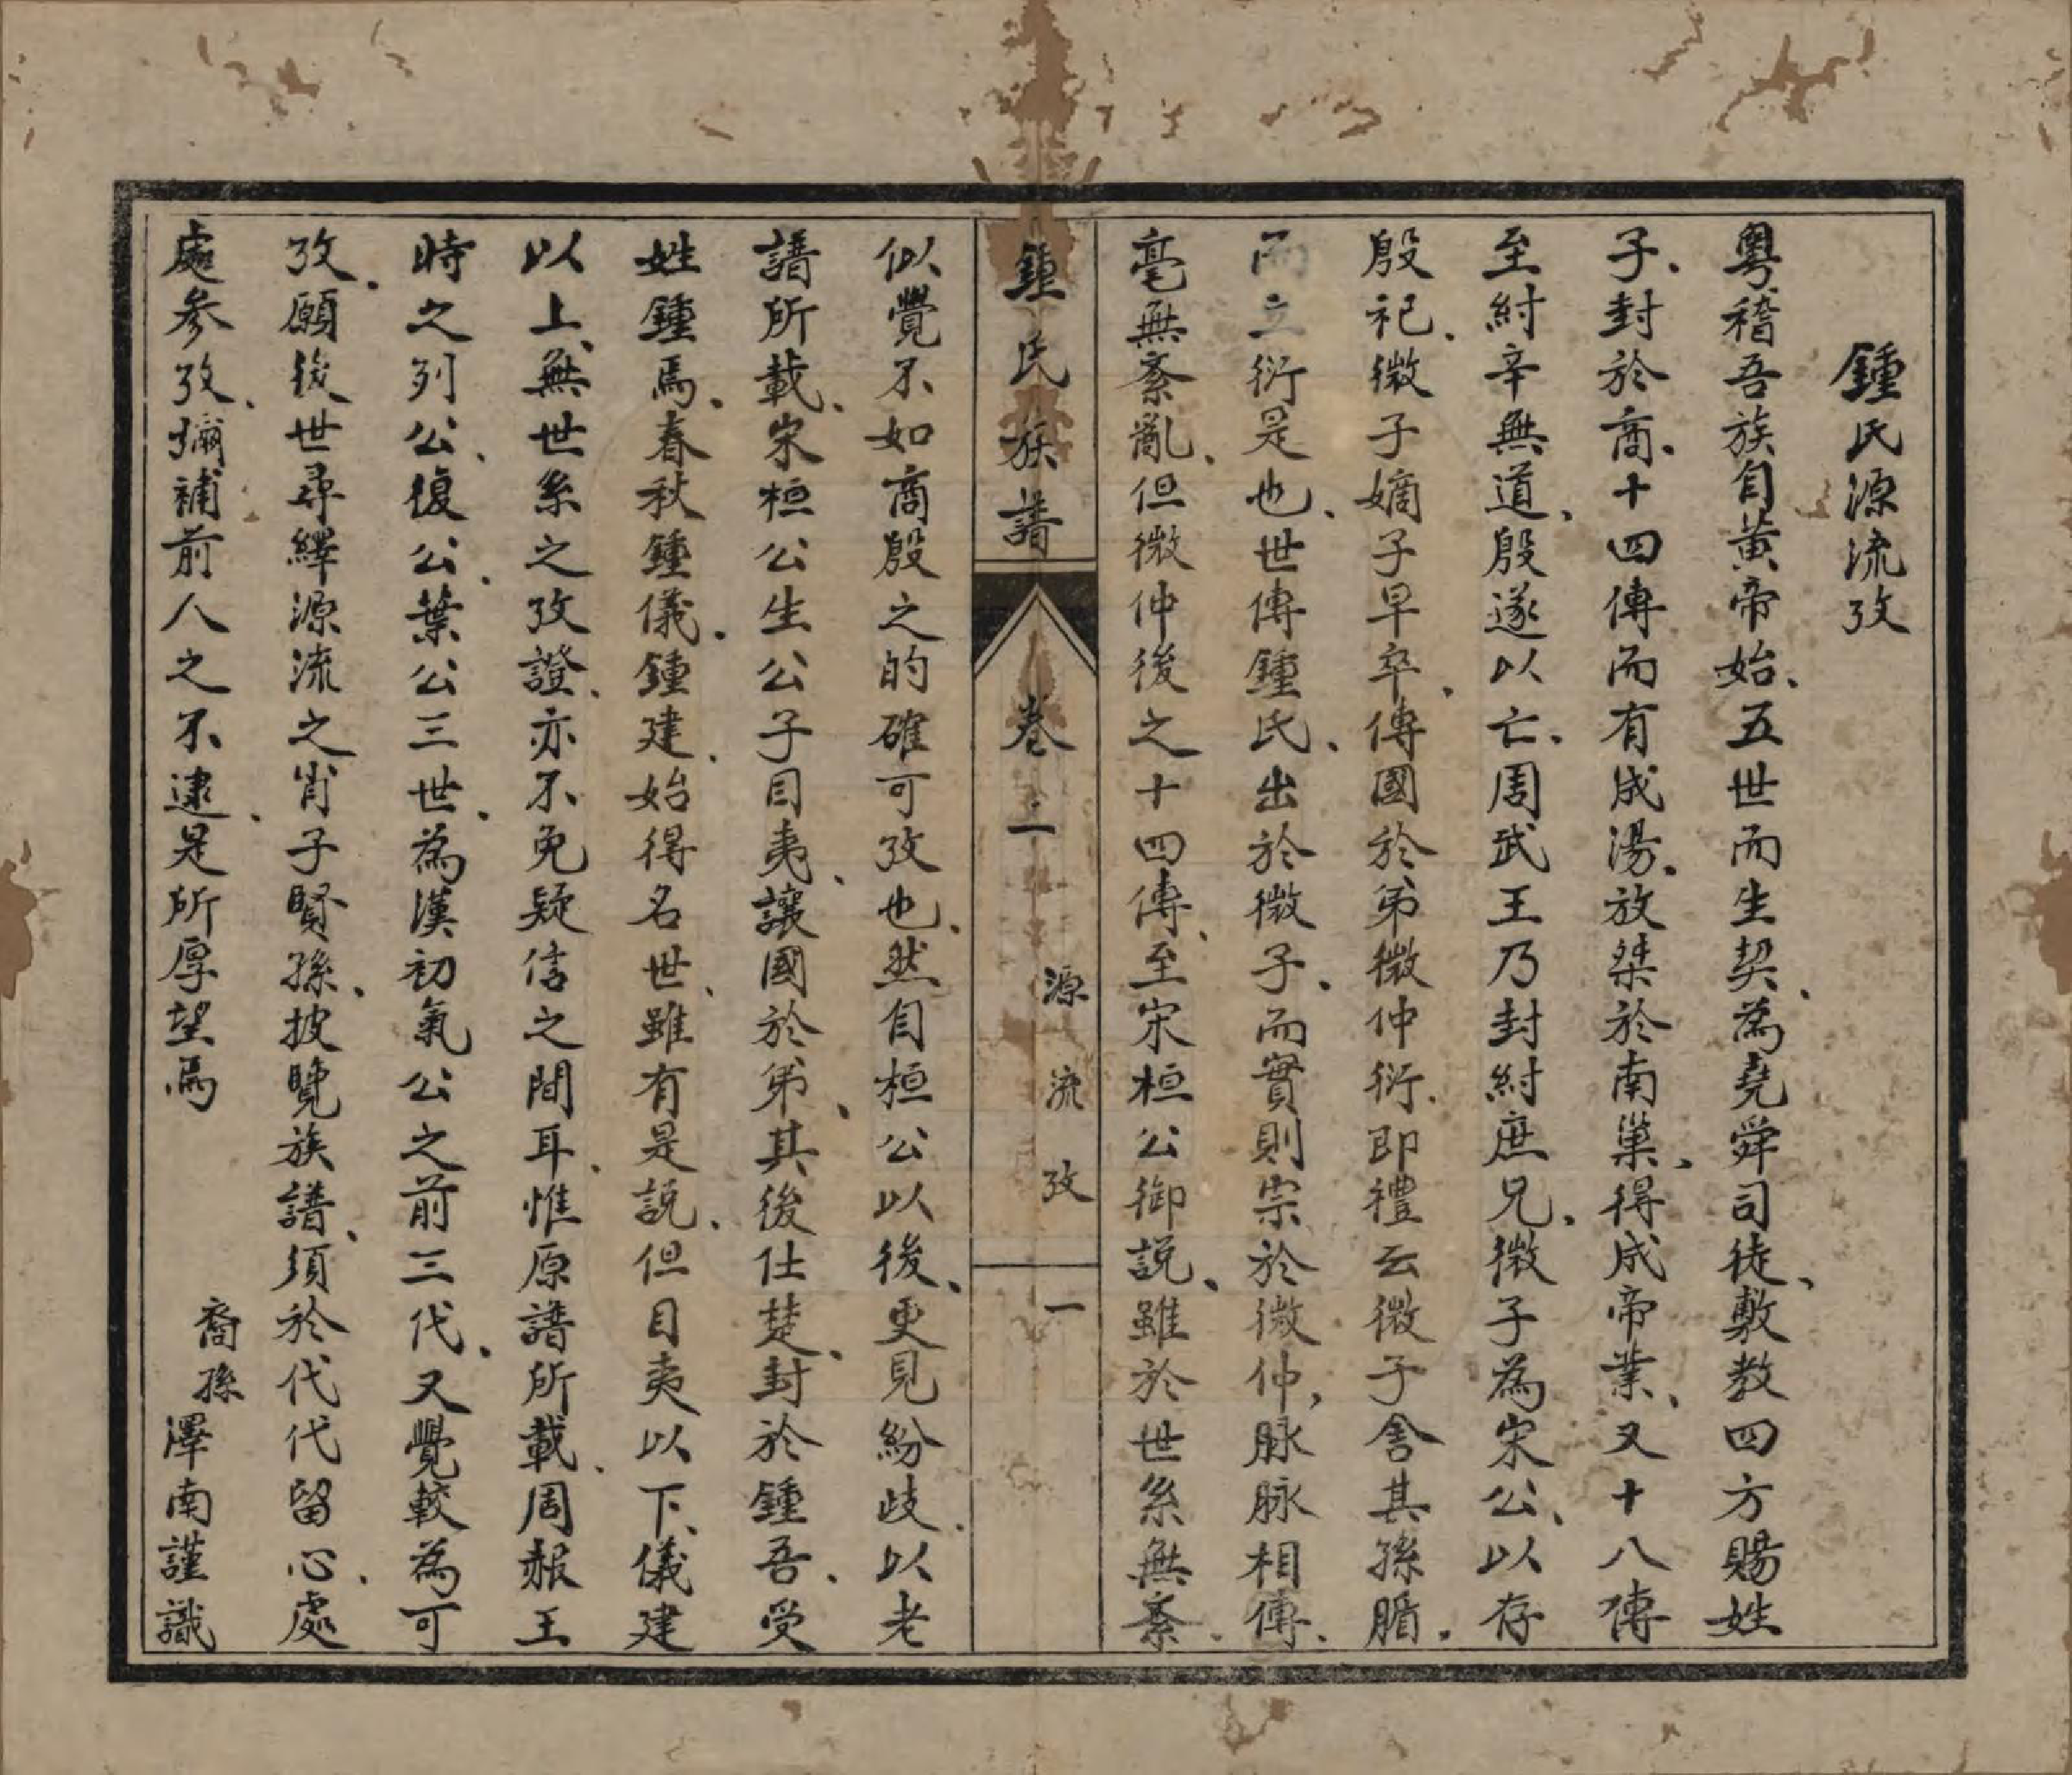 鍾氏源流攷
粵稽吾族自黃帝始、五世而生契、為堯舜司徒、敷教四方賜姓
子、封於商、十四傳而有成湯、放桀於南巢、得成帝業、又十八傳
至紂辛無道、殷遂以亡、周武王乃封紂庶兄、微子為宋公、以存
殷祀、微子嫡子早卒、傳國於弟微仲衍、即禮云微子舍其孫腯、
而立衍是也、世傳鍾氏、出於微子、而實則宗於微仲、脉脉相傳、
毫無紊亂、但微仲後之十四傳、至宋桓公御說、雖於世系無紊、
鍾氏族譜
卷二
源流攷
一
似覺不如商殷之的確可攷也、然自桓公以後、更見紛歧、以老
譜所載、宋桓公生公子目夷、讓國於弟、其後仕楚、封於鍾吾、受
姓鍾焉、春秋鍾儀、鍾建、始得名世、雖有是說、但目夷以下、儀建
以上、無世系之攷證、亦不免疑信之間耳、惟原譜所載、周赧王
時之列公、復公、葉公三世、為漢初氣公之前三代、又覺較為可
攷、願後世尋繹源流之肖子賢孫、披覽族譜、須於代代留心、處
處參攷、彌補前人之不逮、是所厚望焉
裔孫澤南謹識